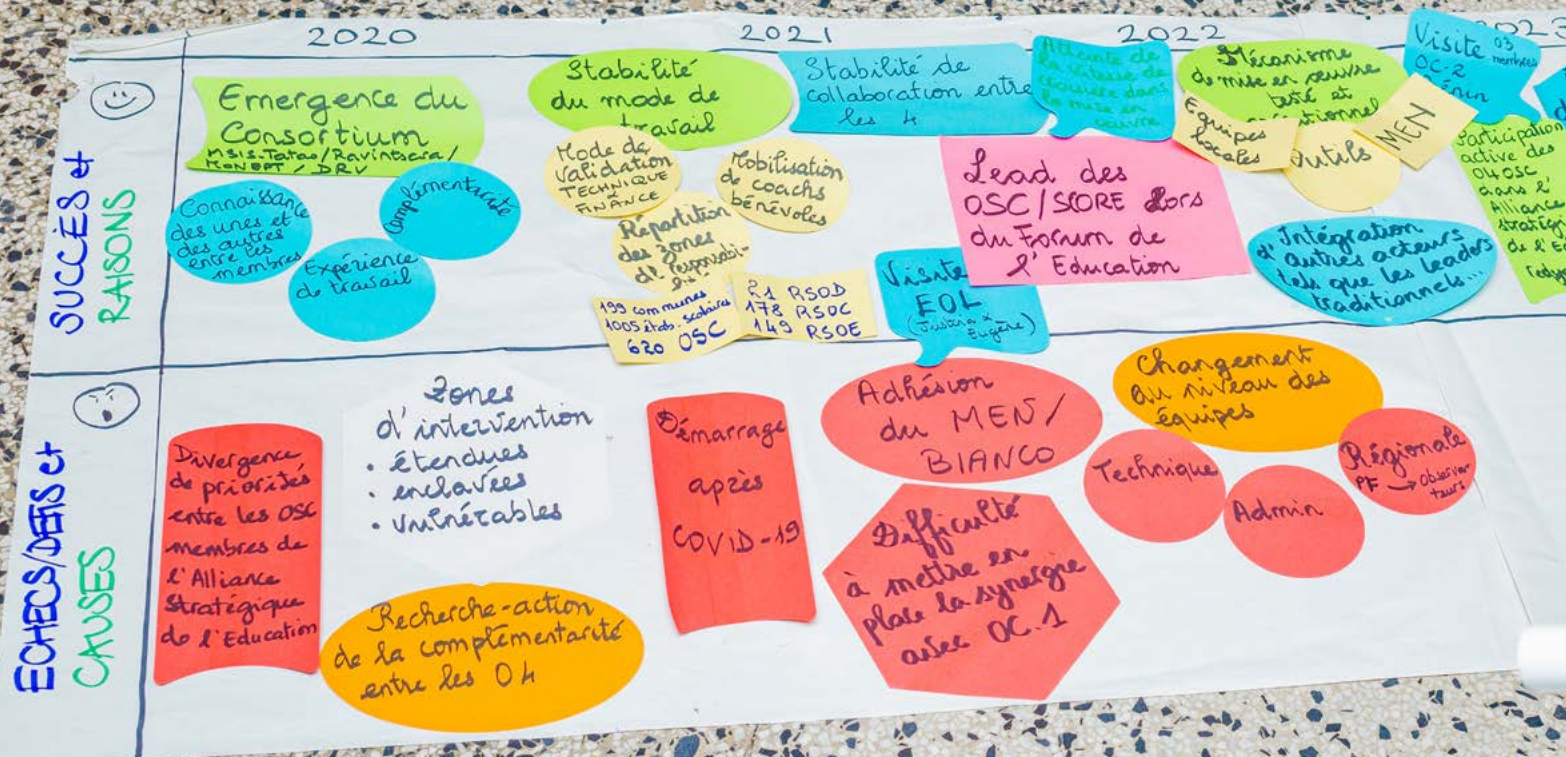 2020
2021
2022
2023
SUCCÈS et
RAISONS
Emergence du
Consortium
MSIS-Tatao/Ravintsara/
MONEPT / DRV
Connaissance
des unes et
des autres
entre les
membres
Complémentarité
Expérience
de travail
Stabilité
du mode de
travail
Mode de
Validation
TECHNIQUE
&
FINANCE
Mobilisation
de coachs
bénévoles
Répartition
des zones
de responsabi-
lité
199 communes
1005 étab. scolaires
620 OSC
21 RSOD
178 RSOC
149 RSOE
Stabilité de
collaboration entre
les 4
Atteinte de
la vitesse de
croisière dans
la mise en
œuvre
Lead des
OSC/SCORE lors
du Forum de
l'Education
Visite
EOL
(Justria & Eugène)
Mécanisme
de mise en œuvre
testé et
Equipes
locales
Outils
MEN
Intégration
d'autres acteurs
tels que les leaders
traditionnels...
Visite 03 membres
OC-2
Participation
active des
04 OSC
dans l'
Alliance
ECHECS/DÉFIS et
CAUSES
Divergence
de priorités
entre les OSC
membres de
l'Alliance
Stratégique
de l'Education
Zones
d'intervention
• étendues
• enclavées
• vulnérables
Recherche-action
de la complémentarité
entre les 04
Démarrage
après
COVID-19
Adhésion
du MEN/
BIANCO
Difficulté
à mettre en
place la synergie
avec OC.1
Changement
au niveau des
équipes
Technique
Admin
Régionale
PF → Observa
teurs